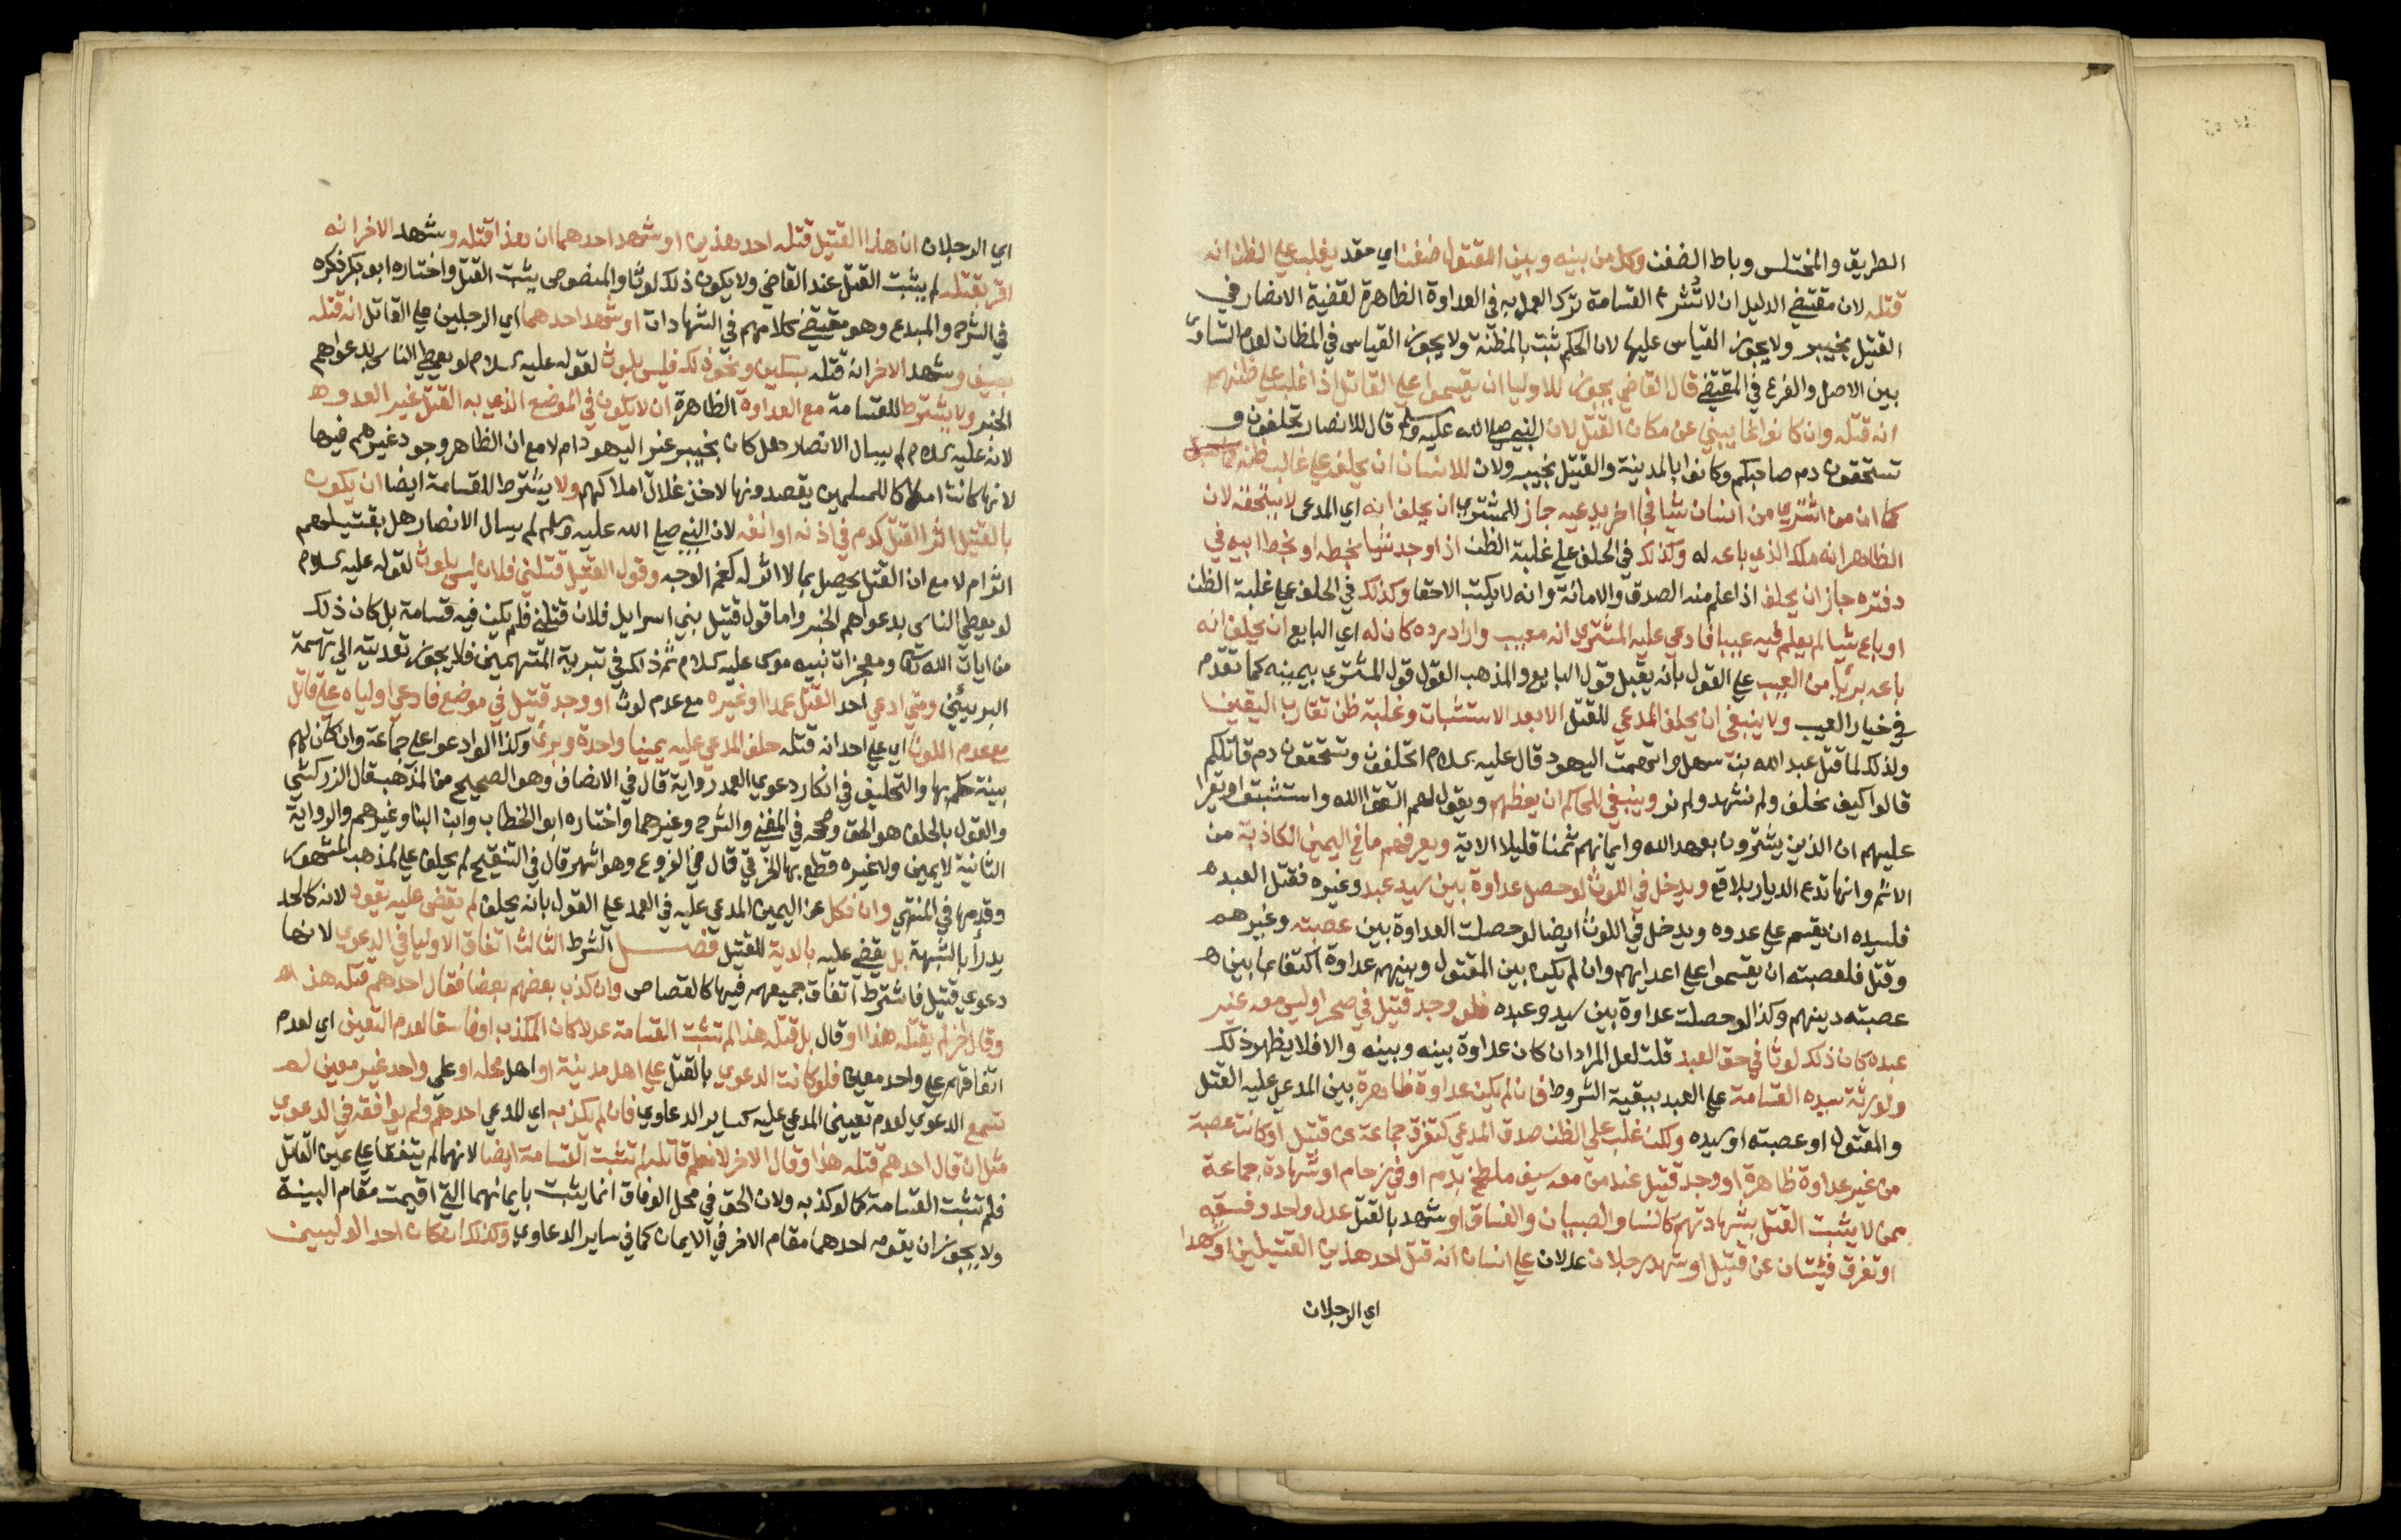 الطريق والمختلس وباط الضغن وكل من بينه وبين المقتول ضغن اي حقد يغلب علي الظن انه
قتله لان مقتضي الدليل ان لا تشرع القسامة ترك العمل به في العداوة الظاهرة لقضية الانصار في
القتيل بخيبر ولا يجوز القياس عليها لان الحكم ثبت بالمظنة ولا يجوز القياس في المظان لعدم التساوي
بين الاصل والفرع في المقتضي قال القاضي يجوز للاوليا ان يقسموا علي القاتل اذا غلب علي ظنهم
انه قتله وان كانوا غايبين عن مكان القتل لان النبي صلي الله عليه وسلم قال للانصار تحلفون و
تستحقون دم صاحبكم وكانوا بالمدينة والقتيل بخيبر ولان للانسان ان يحلف علي غالب ظنه
كما ان من اشتري من انسان شيا فجا اخر يدعيه جاز للمشتري ان يحلف انه اي المدعي لا يستحقه لان
الظاهر انه ملك الذي باعه له وكذلك في الحلف علي غلبة الظن اذا وجد شيا بخطه او بخط ابيه في
دفتره جاز ان يحلف اذا علم منه الصدق والامانة وانه لا يكتب الا حقا وكذلك في الحلف علي غلبة الظن
او باع شيا لم يعلم فيه عيبا فادعي عليه المشتري انه معيب واراد رده كان له اي البايع ان يحلف انه
باعه بريا من العيب علي القول بانه يقبل قول البايع والمذهب القول قول المشتري بيمينه كما تقدم
في خيار العيب ولا ينبغي ان يحلف المدعي للقتل الا بعد الاستثبات وغلبة ظن تقارب اليقين
ولذلك لما قتل عبد الله بن سهل واتهمت اليهود قال عليه السلام اتحلفون وتستحقون دم قاتلكم
قالوا كيف نحلف ولم نشهد ولم نر وينبغي للحاكم ان يعظهم ويقول لهم اتقوا الله واستثبتوا ويقرا
عليهم ان الذين يشترون بعهد الله وايمانهم ثمنا قليلا الاية ويعرفهم ما في اليمين الكاذبة من
الاثم وانها تدع الديار بلاقع ويدخل في اللوث لو حصل عداوة بين سيد عبد وغيره فقتل العبد
فلسيده ان يقسم علي عدوه ويدخل في اللوث ايضا لو حصلت العداوة بين عصبته وغيرهم
وقتل فلعصبته ان يقسموا علي اعدايهم وان لم يكن بين المقتول وبينهم عداوة اكتفا بما بين
عصبته وبينهم وكذا لو حصلت عداوة بين سيد وعبده فلو وجد قتيل في صحرا وليس معه غير
عبده كان ذلك لوثا في حق العبد قلت لعل المراد ان كان عداوة بينه وبينه والا فلا يظهر ذلك
ولورثة سيده القسامة علي العبد ببقية الشروط فان لم يكن عداوة ظاهرة بين المدعي عليه القتل
والمقتول او عصبته او سيده ولكن غلب علي الظن صدق المدعي كتفرق جماعة عن قتيل او كانت عصبة
من غير عداوة ظاهرة او وجد قتيل عند من معه سيف ملطخ بدم او في زحام او شهادة جماعة
ممن لا يثبت القتل بشهادتهم كالنسا والصبيان والفساق او شهد بالقتل عدل واحد وفسقة
او تفرق فيتان عن قتيل او شهد رجلان عدلان علي انسان انه قتل احد هذين القتيلين او شهدا
اي الرجلان
اي الرجلان ان هذا القتيل قتله احد هذين او شهد احدهما ان هذا قتله وشهد الاخر انه
اقر بقتله لم يثبت القتل عند القاضي ولا يكون ذلك لوثا والمنصوص يثبت القتل واختاره ابو بكر ذكره
في الشرح والمبدع وهو مقتضي كلامهم في الشهادات او شهد احدهما اي الرجلين علي القاتل انه قتله
بسيف وشهد الاخر انه قتله بسكين ونحو ذلك فليس بلوث لقوله عليه السلام لو يعطي الناس بدعواهم
الخبر ولا يشترط للقسامة مع العداوة الظاهرة ان لا يكون في الموضع الذي به القتل غير العدو
لانه عليه السلام لم يسال الانصار هل كان بخيبر غير اليهود ام لا مع ان الظاهر وجود غيرهم فيها
لانها كانت املاكا للمسلمين يقصدونها لاخذ غلات املاكهم ولا يشترط للقسامة ايضا ان يكون
بالقتيل اثر القتل كدم في اذنه او انفه لان النبي صلي الله عليه وسلم لم يسال الانصار هل بقتيلهم
اثر ام لا مع ان القتل يحصل بما لا اثر له كغم الوجه وقول القتيل قتلني فلان ليس بلوث لقوله عليه السلام
لو يعطي الناس بدعواهم الخبر واما قول قتيل بني اسرايل فلان قتلني فلم يكن فيه قسامة بل كان ذلك
من ايات الله تعالى ومعجزات نبيه موسى عليه السلام ثم ذلك في تبرية المتهمين فلا يجوز تعديته الي تهمة
البريئين ومتي ادعي احد القتل عمدا او غيره مع عدم لوث او وجد قتيل في موضع فادعي اولياه علي قاتل
مع عدم اللوث اي علي احد انه قتله حلف المدعي عليه يمينا واحدة وبرئ وكذا لو ادعوا علي جماعة وان كان لهم
بينة حكم بها والتحليف في انكار دعوي العمد رواية قال في الانصاف وهو الصحيح من المذهب قال الزركشي
والقول بالحلف هو الحق وصححه في المغني والشرح وغيرهما واختاره ابو الخطاب وابن البنا وغيرهم والرواية
الثانية لا يمين ولا غيره قطع بها الخرقي قال في الفروع وهو اشهر قال في التنقيح لم يحلف علي المذهب المشهور
وقدمها في المنتهي وان نكل عن اليمين المدعي عليه في العمد علي القول بانه يحلف لم يقض عليه بقود لانه كالحد
يدرأ بالشبهة بل يقضي عليه بالدية للقتيل فصل الشرط الثالث اتفاق الاوليا في الدعوي لانها
دعوي قتيل فاشترط اتفاق جميعهم فيها كالقصاص وان كذب بعضهم بعضا فقال احدهم قتله هذا
وقال اخر لم يقتله هذا او قال بل قتله هذا لم تثبت القسامة عدلا كان المكذب او فاسقا لعدم التعيين اي لعدم
اتفاقهم علي واحد معين فلو كانت الدعوي بالقتل علي اهل مدينة او اهل محله او علي واحد غير معين لم
تسمع الدعوي لعدم تعيين المدعي عليه كساير الدعاوي فان لم يكذبه اي المدعي احدهم ولم يوافقه في الدعوي
مثل ان قال احدهم قتله هذا وقال الاخر لا نعلم قاتله لم تثبت القسامة ايضا لانهما لم يتفقا علي عين القاتل
فلم تثبت القسامة كما لو كذبه ولان الحق في محل الوفاق انما يثبت بايمانهما التي اقيمت مقام البينة
ولا يجوز ان يقوم احدهما مقام الاخر في الايمان كما في ساير الدعاوي وكذلك ان كان احد الوليين